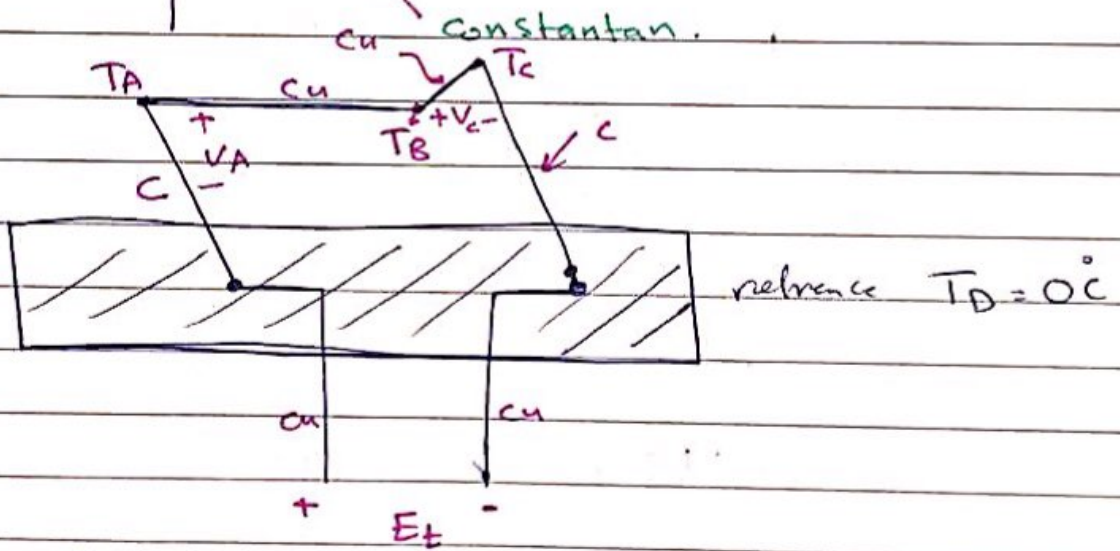 Constantan.
Cu
TA
Cu
TC
+
+Vc-
TB
C
VA
C
-
refrence TD = 0°C
Cu
Cu
+
Et
-